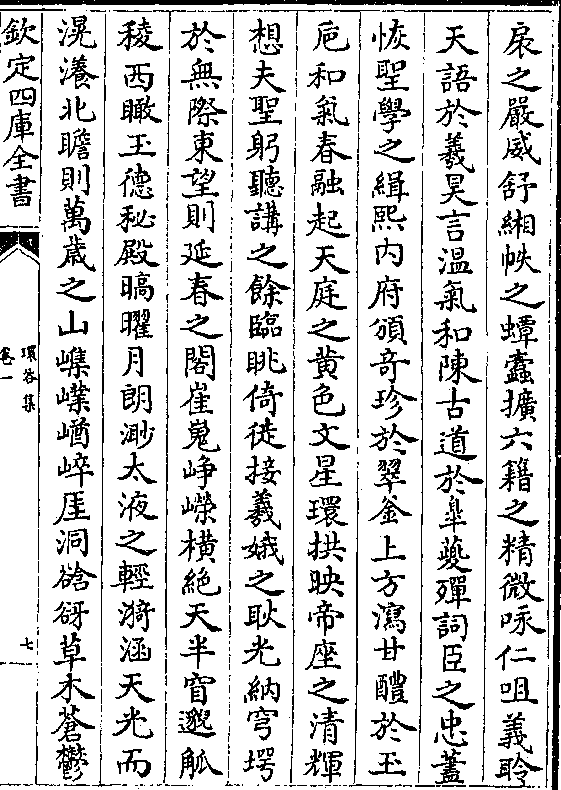 扆之嚴威舒緗帙之蟫蠧擴六籍之精微咏仁咀義聆
天語於羲昊言温氣和陳古道於臯夔殫詞臣之忠藎
恢聖學之緝熙内府頒奇珍於翠釜上方瀉甘醴於玉
巵和氣春融起天庭之黄色文星環拱映帝座之清輝
想夫聖躬聽講之餘臨眺倚徙接羲娥之耿光納穹堮
於無際東望則延春之閣崔嵬崢嶸橫絶天半窅邈觚
稜西瞰玉德秘殿暠曜月朗渺太液之輕漪涵天光而
滉瀁北瞻則萬歳之山嶫崿崷崪厓洞谽谺草木蒼鬱
欽定四庫全書
環谷集
卷一
七